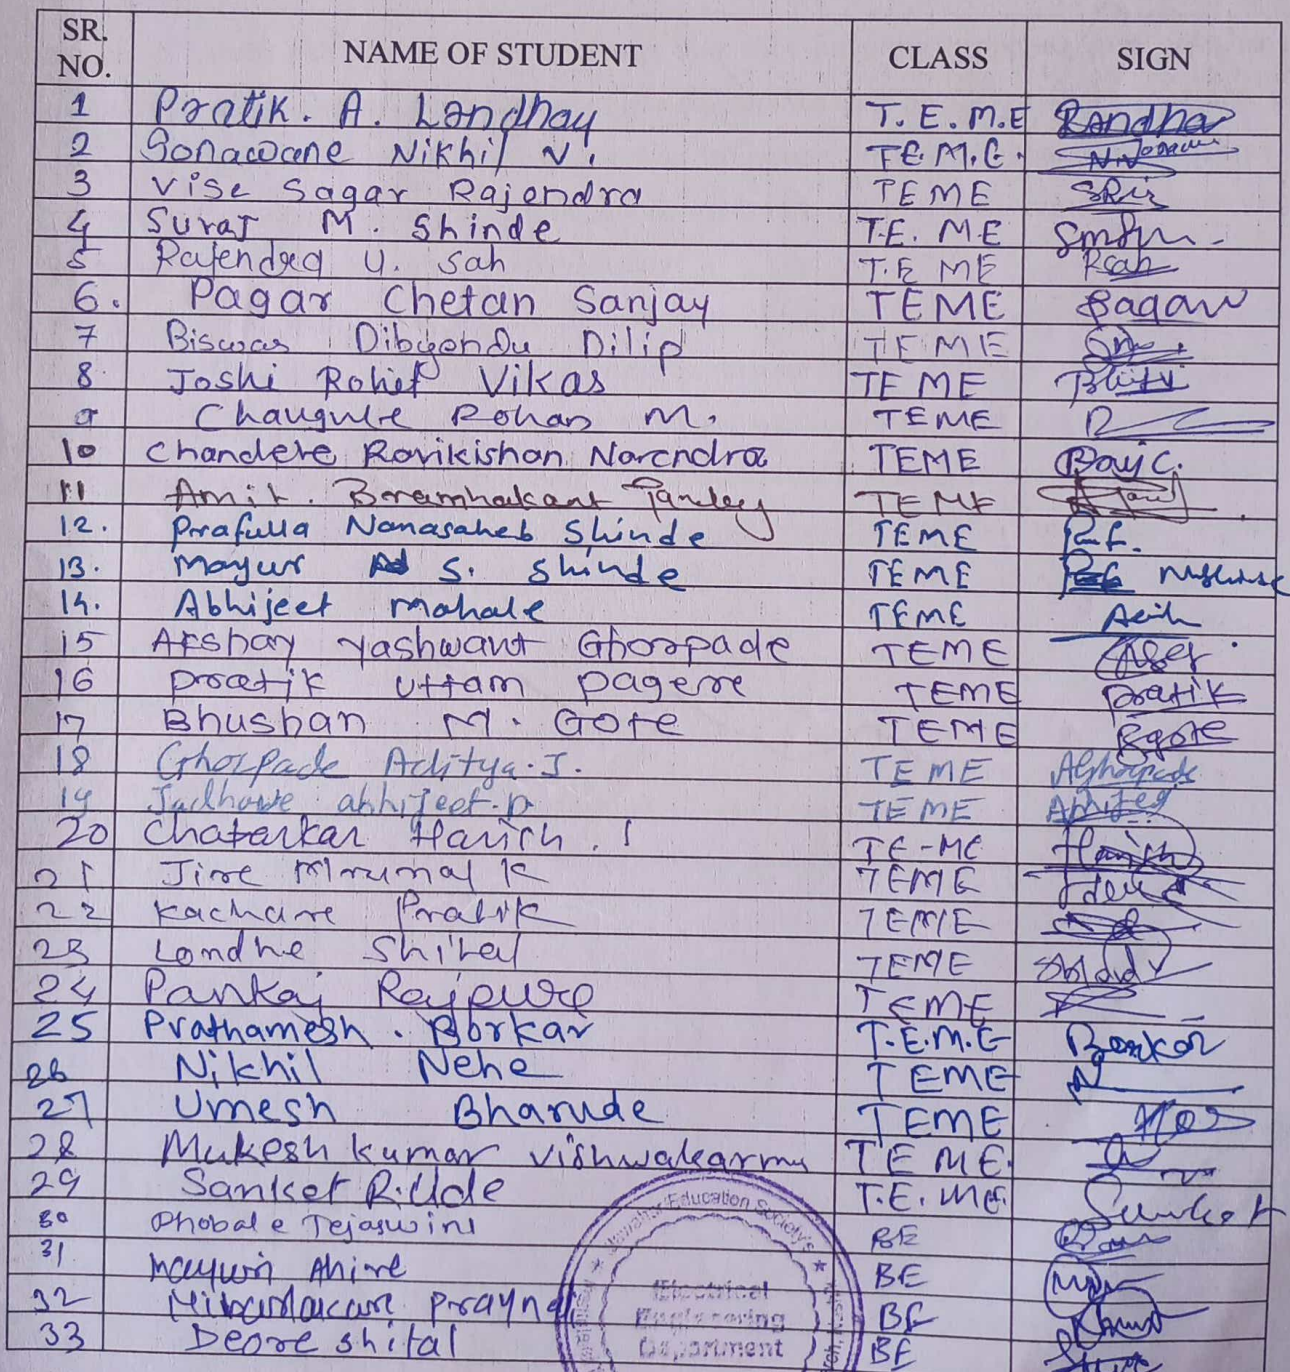 SR. NO. NAME OF STUDENT CLASS SIGN
1 Pratik. A. Landhay T.E.M.E
2 Sonawane Nikhil N. T.E.M.E.
3 Vise Sagar Rajendra TEME
4 Suraj M. Shinde T.E. ME
5 Rajendra U. Sah T.E ME
6. Pagar Chetan Sanjay TEME Pagar
7 Biswas Dibyendu Dilip TEME
8 Joshi Rohit Vikas TE ME
9 Chaugule Rohan M. TEME
10 Chandere Ravikishan Narendra TEME
11 Amit. Bramhakant TEME
12. Prafulla Nanasaheb Shinde TEME
13. Mayur S. Shinde TEME
14. Abhijeet Mahale TEME
15 Akshay Yashwant Ghorpade TEME
16 Pratik Uttam Pagere TEME Pratik
17 Bhushan M. Gote TEME Bgote
18 Ghorpade Aditya. J. TEME AGhorpade
19 Jadhave abhijeet. D TEME Abhijeet
20 Chatarkar Harish. I TE-ME Harish
21 Jire Mrunal K TEME
22 Kachare Pratik TEME
23 Londhe Shital TEME
24 Pankaj Rajpure TEME
25 Prathamesh. Borkar T.E.M.E Borkar
26 Nikhil Nehe TEME
27 Umesh Bharude TEME
28 Mukesh kumar vishwakarma TE ME.
29 Sanket R. Ude T.E. ME. Sanket
30 Dhobale Tejaswini BE
31 Mayuri Ahire BE
32 BE
33 Deore Shital BE
Jawahar Education Society's
Electrical
Engineering
Department